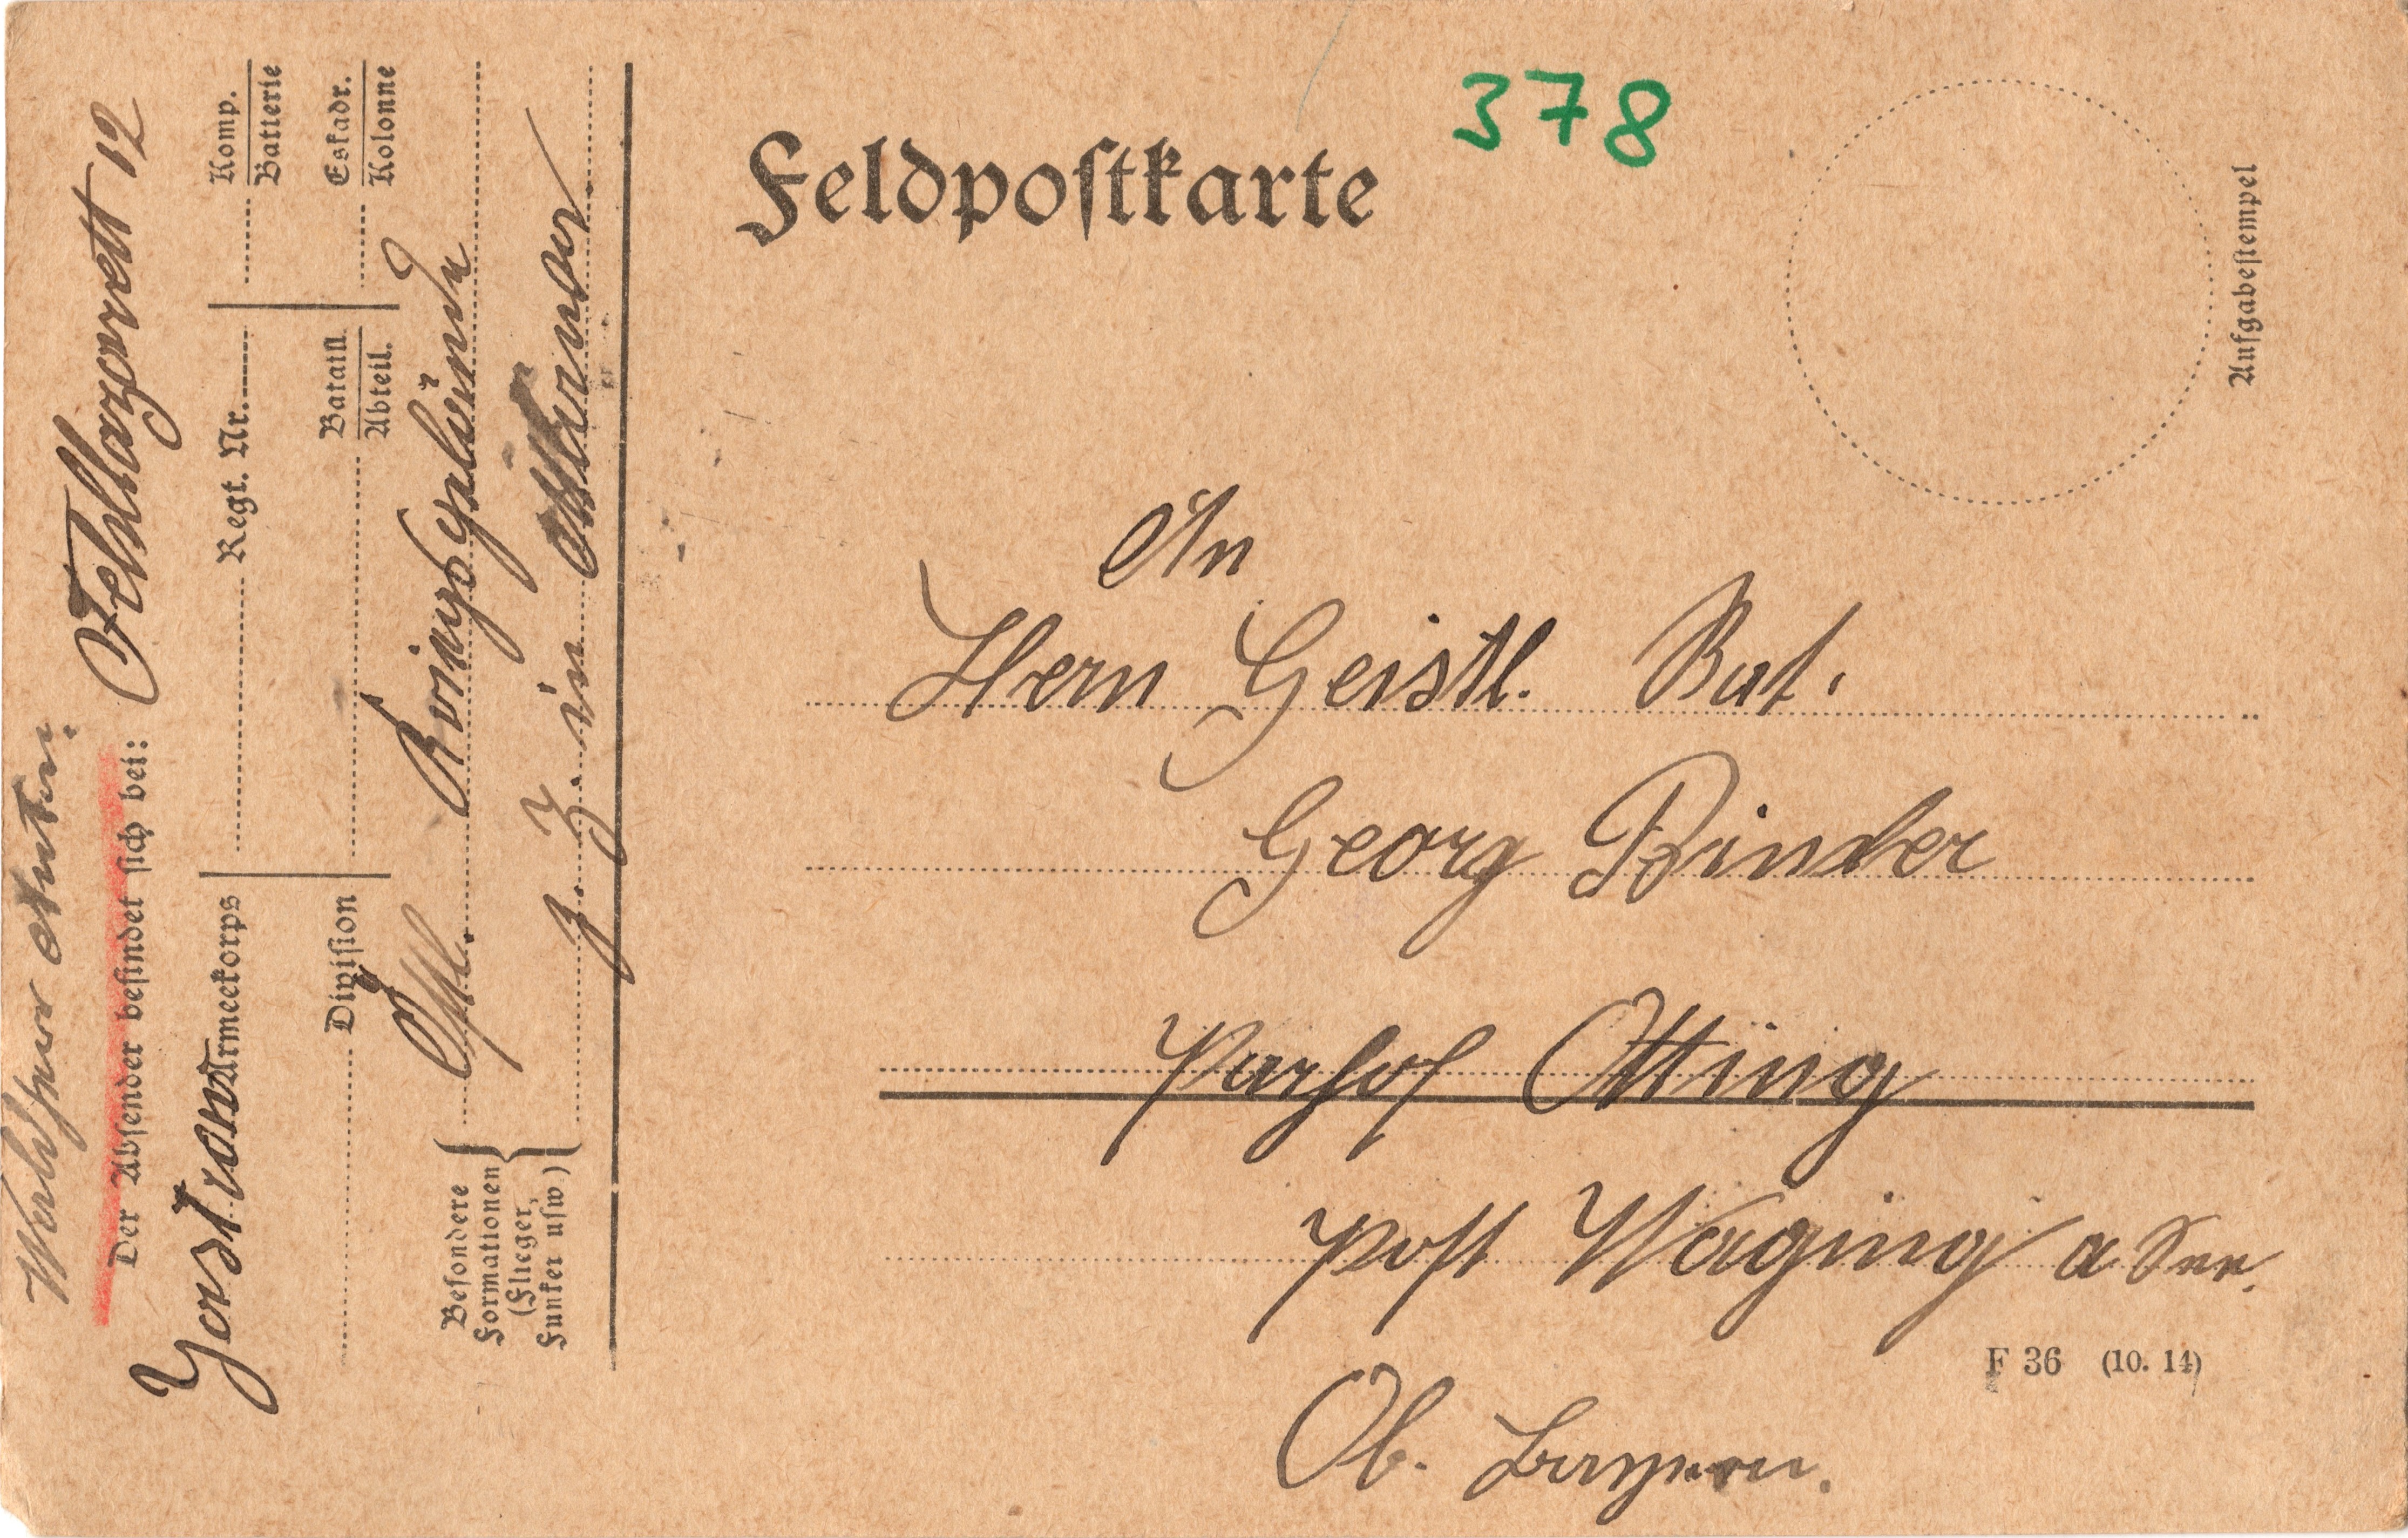 Feldpostkarte
378
Aufgabestempel
An
Hern Geistl. Rat.
Georg Binder
Parhof Otting
Post Waging a See.
Ob. Bayern.
F 36 (10. 14)
Anton.
Der Absender befindet sich bei: Feldlazarett 12
Armeekorps Regt. Nr. Komp.
Batterie
Division Bataill. Eskadr.
Abteil. Kolonne
Besondere
Formationen
(Flieger,
Funker usw)
z. Z. in